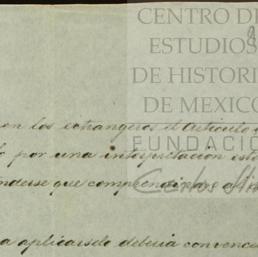 CENTRO DE
ESTUDIOS
DE HISTORI
DE MEXICO
FUNDACI
Carlos
con los extrangeros el Articulo
por una interpretacion
que comprenda
a aplicarselo deberia convence